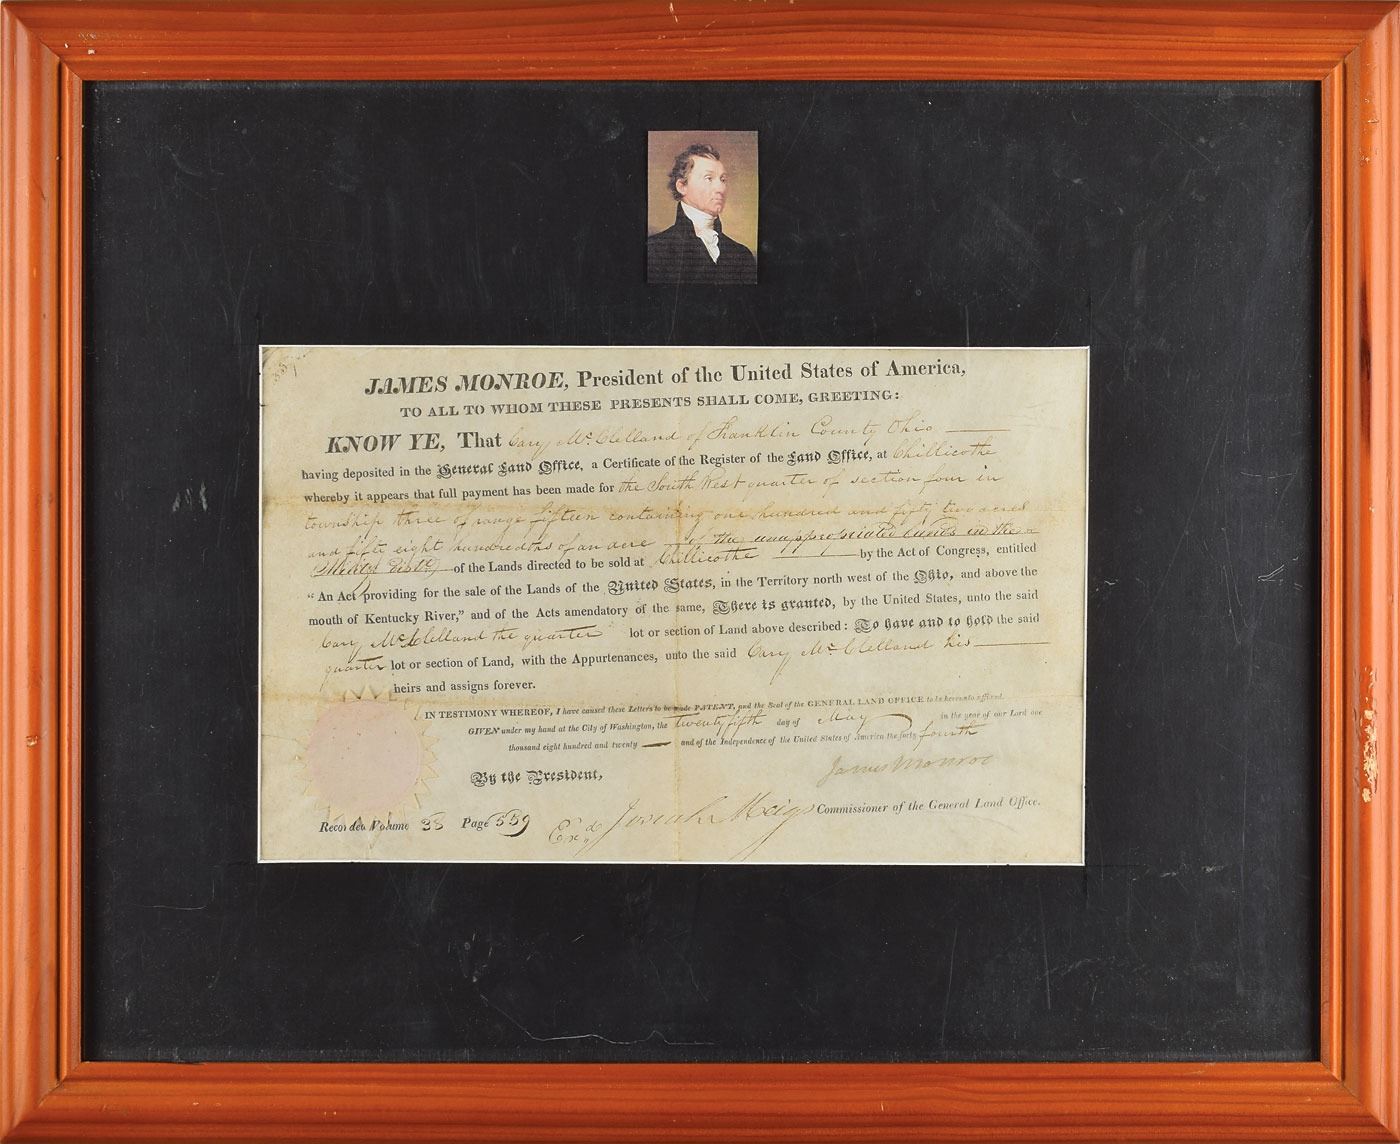 JAMES MONROE, President of the United States of America,
TO ALL TO WHOM THESE PRESENTS SHALL COME, GREETING:
KNOW YE, That Cary McClelland of Franklin County Ohio
having deposited in the General Land Office, a Certificate of the Register of the Land Office, at Chillicothe
whereby it appears that full payment has been made for the South West quarter of section four in
township three of range fifteen containing one hundred and fifty two acres
and fifty eight hundredths of an acre of the unappropriated lands in the
Military Dist. of the Lands directed to be sold at Chillicothe by the Act of Congress, entitled
"An Act providing for the sale of the Lands of the United States, in the Territory north west of the Ohio, and above the
mouth of Kentucky River," and of the Acts amendatory of the same, There is granted, by the United States, unto the said
Cary McClelland the quarter lot or section of Land above described: To have and to hold the said
quarter lot or section of Land, with the Appurtenances, unto the said Cary McClelland his
heirs and assigns forever.
IN TESTIMONY WHEREOF, I have caused these Letters to be made PATENT, and the Seal of the GENERAL LAND OFFICE to be hereunto affixed.
GIVEN under my hand at the City of Washington, the twenty fifth day of May in the year of our Lord one
thousand eight hundred and twenty and of the Independence of the United States of America the forty fourth
James Monroe
By the President,
Josiah Meigs Commissioner of the General Land Office.
Recorded Volume 28 Page 559